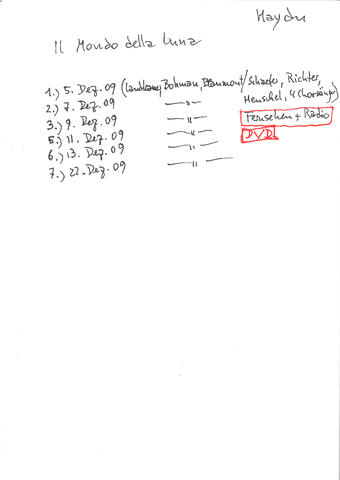 Haydn
Il Mondo della Luna
1.) 5. Dez. 09 (Landkamer, Bohman, Beaumont/Schaefer, Richter,
Henschel, 4 Chorsänger)
2.) 7. Dez. 09 —"—
3.) 9. Dez. 09 —"— Fernsehen + Radio
5.) 11. Dez. 09 —"— DVD
6.) 13. Dez. 09 —"—
7.) 22. Dez. 09 —"—